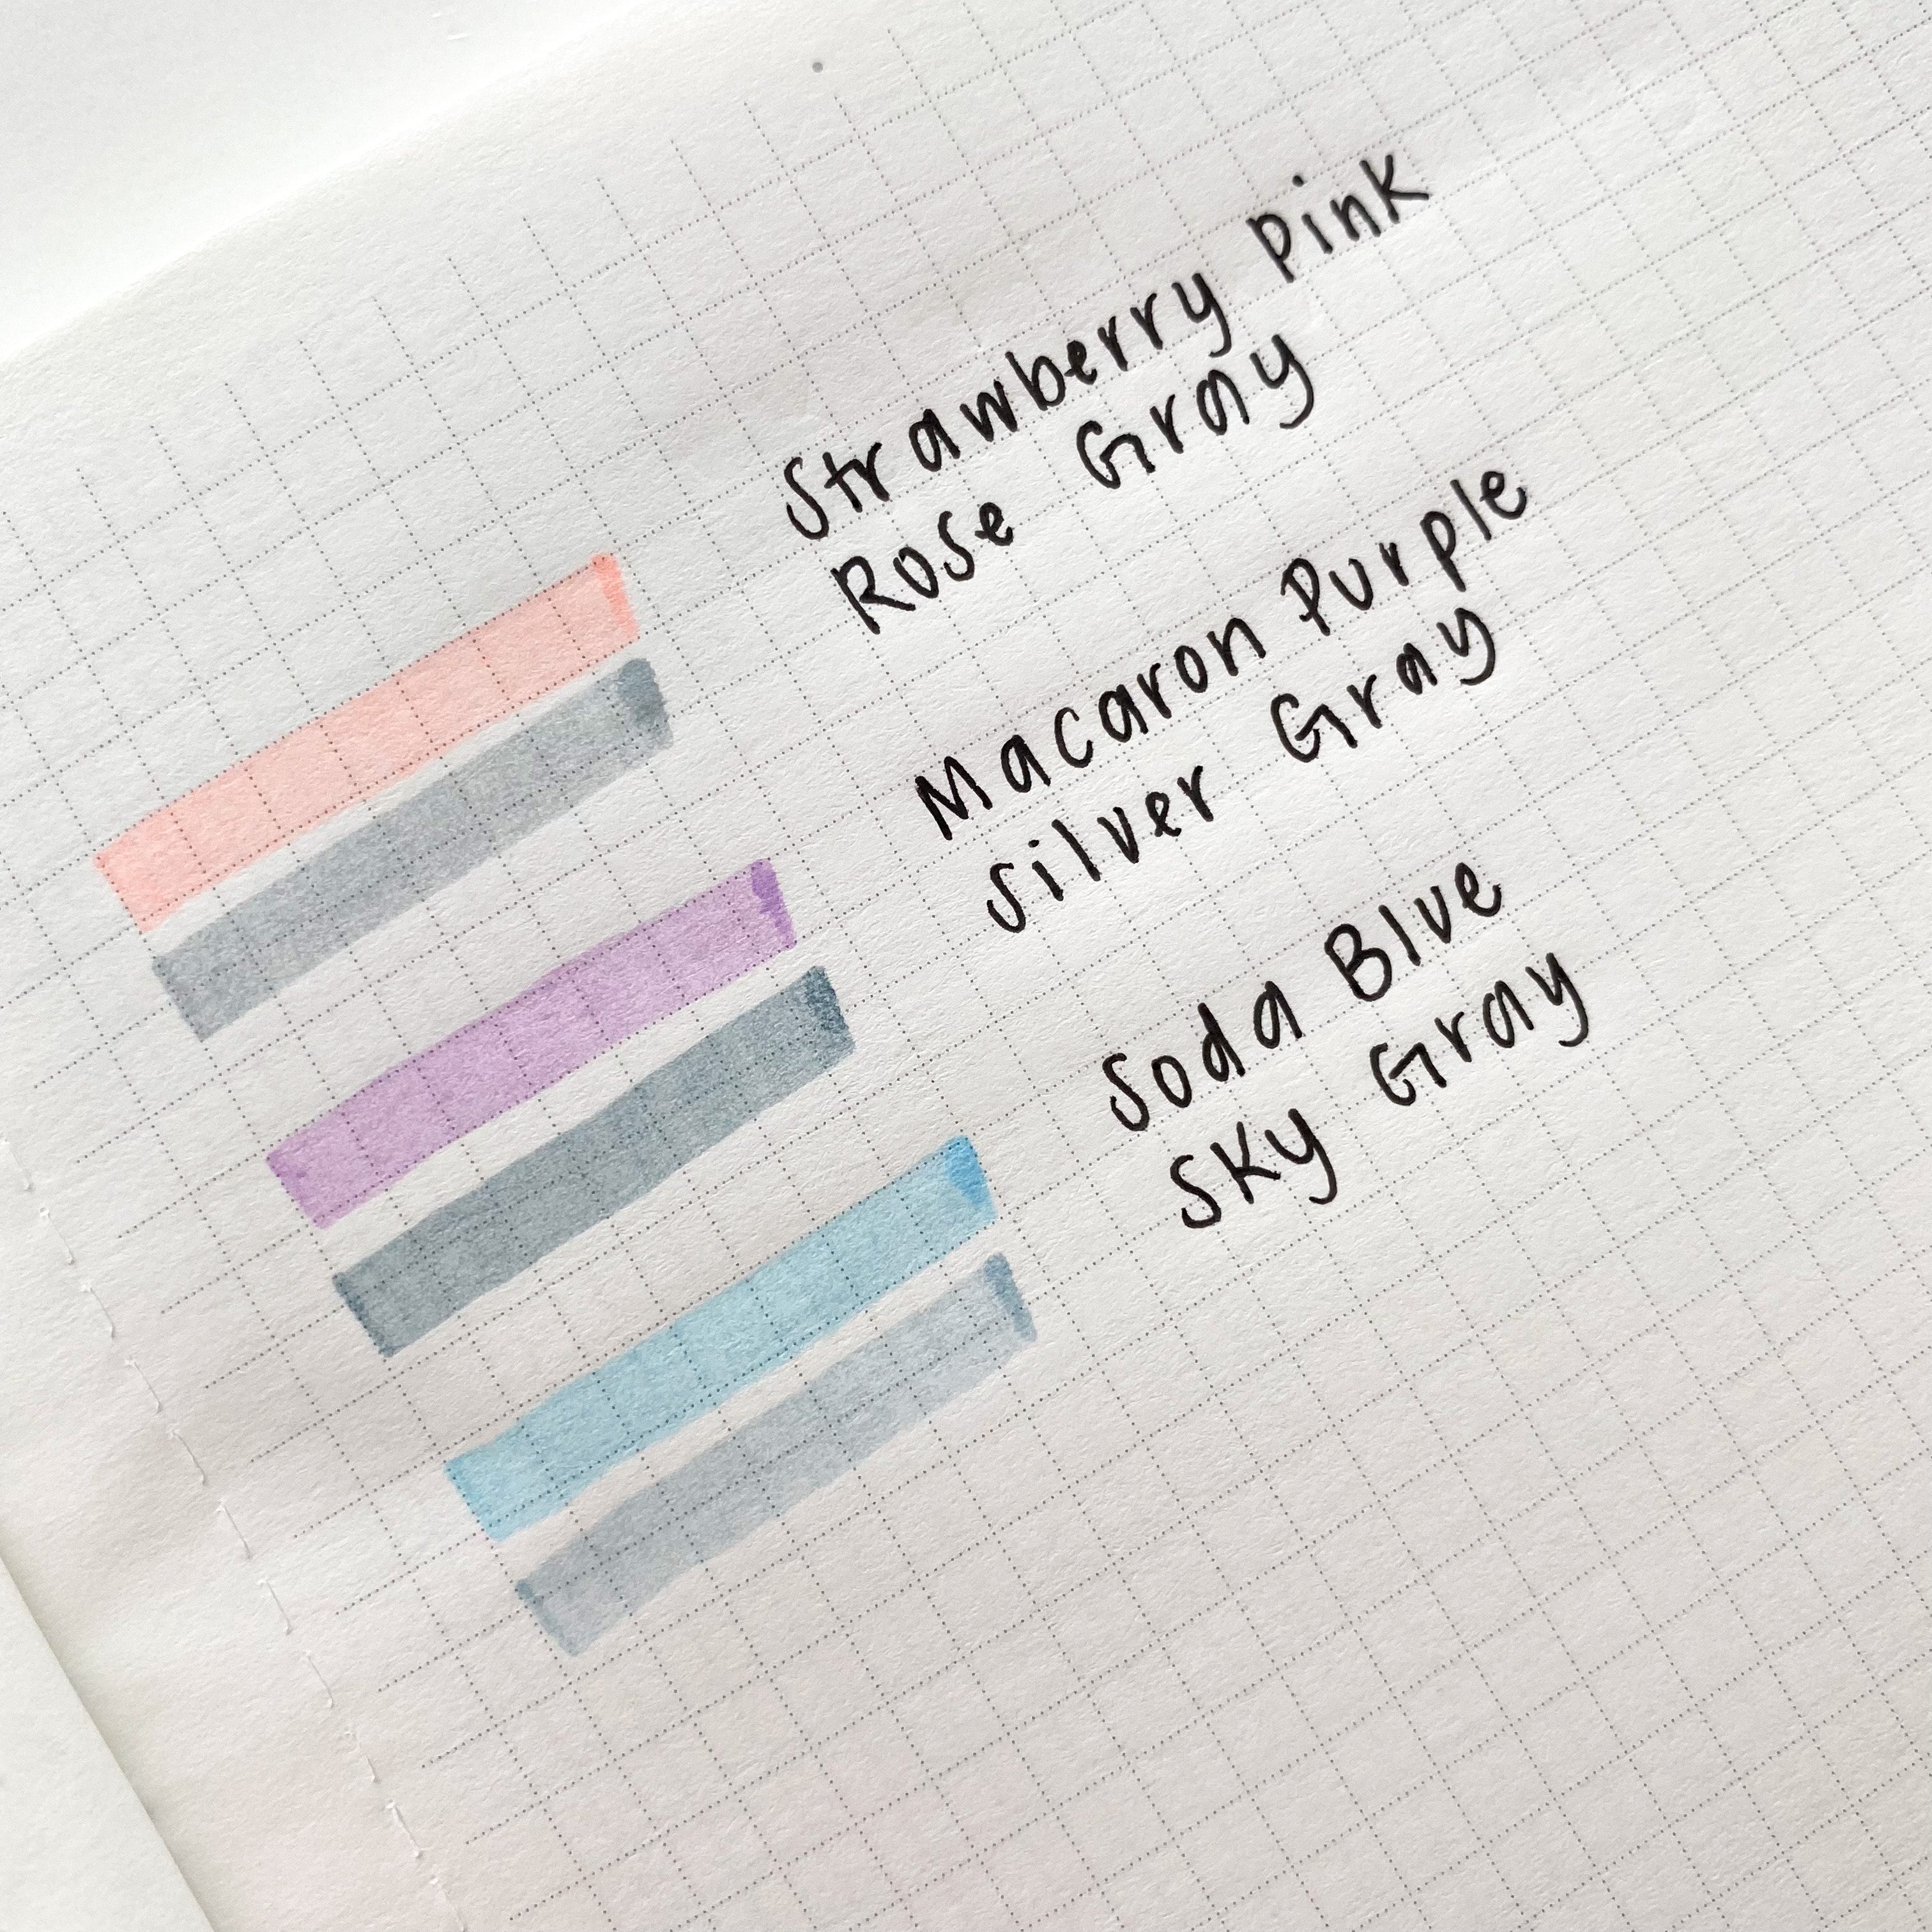 Strawberry Pink
Rose Gray
Macaron Purple
Silver Gray
Soda Blue
Sky Gray